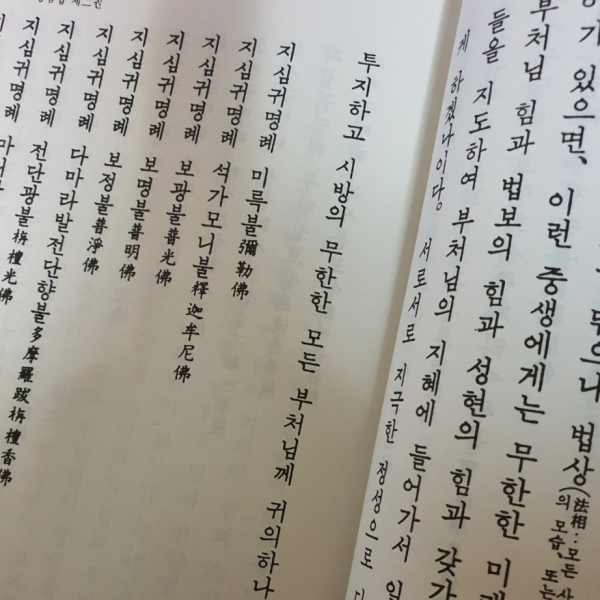 법상(法相:모든 사
의 모습, 또는
있으면, 이런 중생에게는 무한한 미
부처님 힘과 법보의 힘과 성현의 힘과 갖가
들을 지도하여 부처님의 지혜에 들어가서 일
게 하겠나이다. 서로서로 지극한 정성으로
투지하고 시방의 무한한 모든 부처님께 귀의하나
지심귀명례 미륵불彌勒佛
지심귀명례 석가모니불釋迦牟尼佛
지심귀명례 보광불普光佛
지심귀명례 보명불普明佛
지심귀명례 보정불普淨佛
지심귀명례 다마라발전단향불多摩羅跋栴檀香佛
지심귀명례 전단광불栴檀光佛
지심귀명례